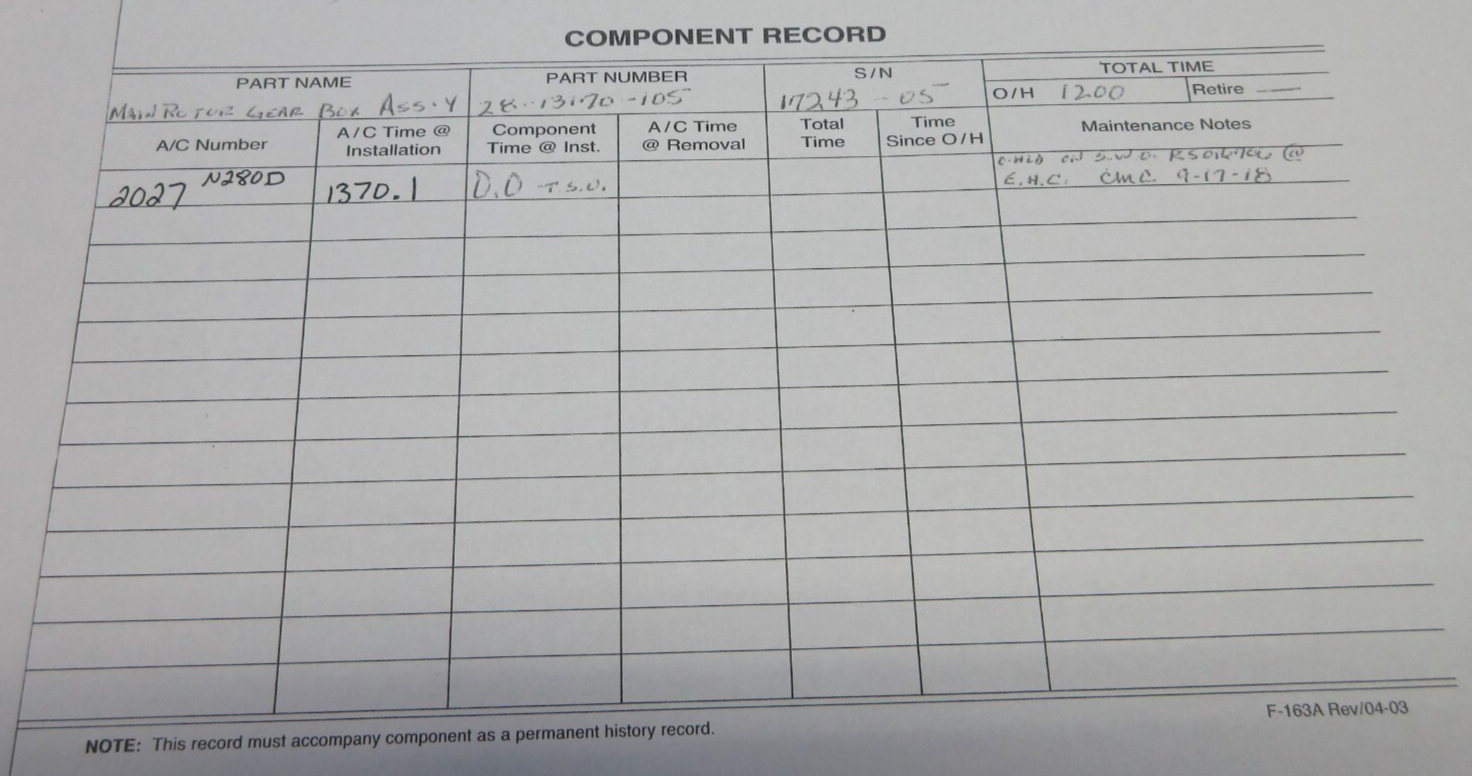 COMPONENT RECORD
PART NAME PART NUMBER S/N TOTAL TIME
MAIN ROTOR GEAR BOX ASS'Y 28-13170-105 17243-05 O/H 1200 Retire —
A/C Number A/C Time @ Installation Component Time @ Inst. A/C Time @ Removal Total Time Time Since O/H Maintenance Notes
O.HLD ON S.W.O. @
2027 N280D 1370.1 0.0 T.S.O. E.H.C. CMC 9-17-18
F-163A Rev/04-03
NOTE: This record must accompany component as a permanent history record.